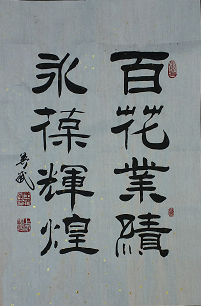 百花業績
永葆輝煌